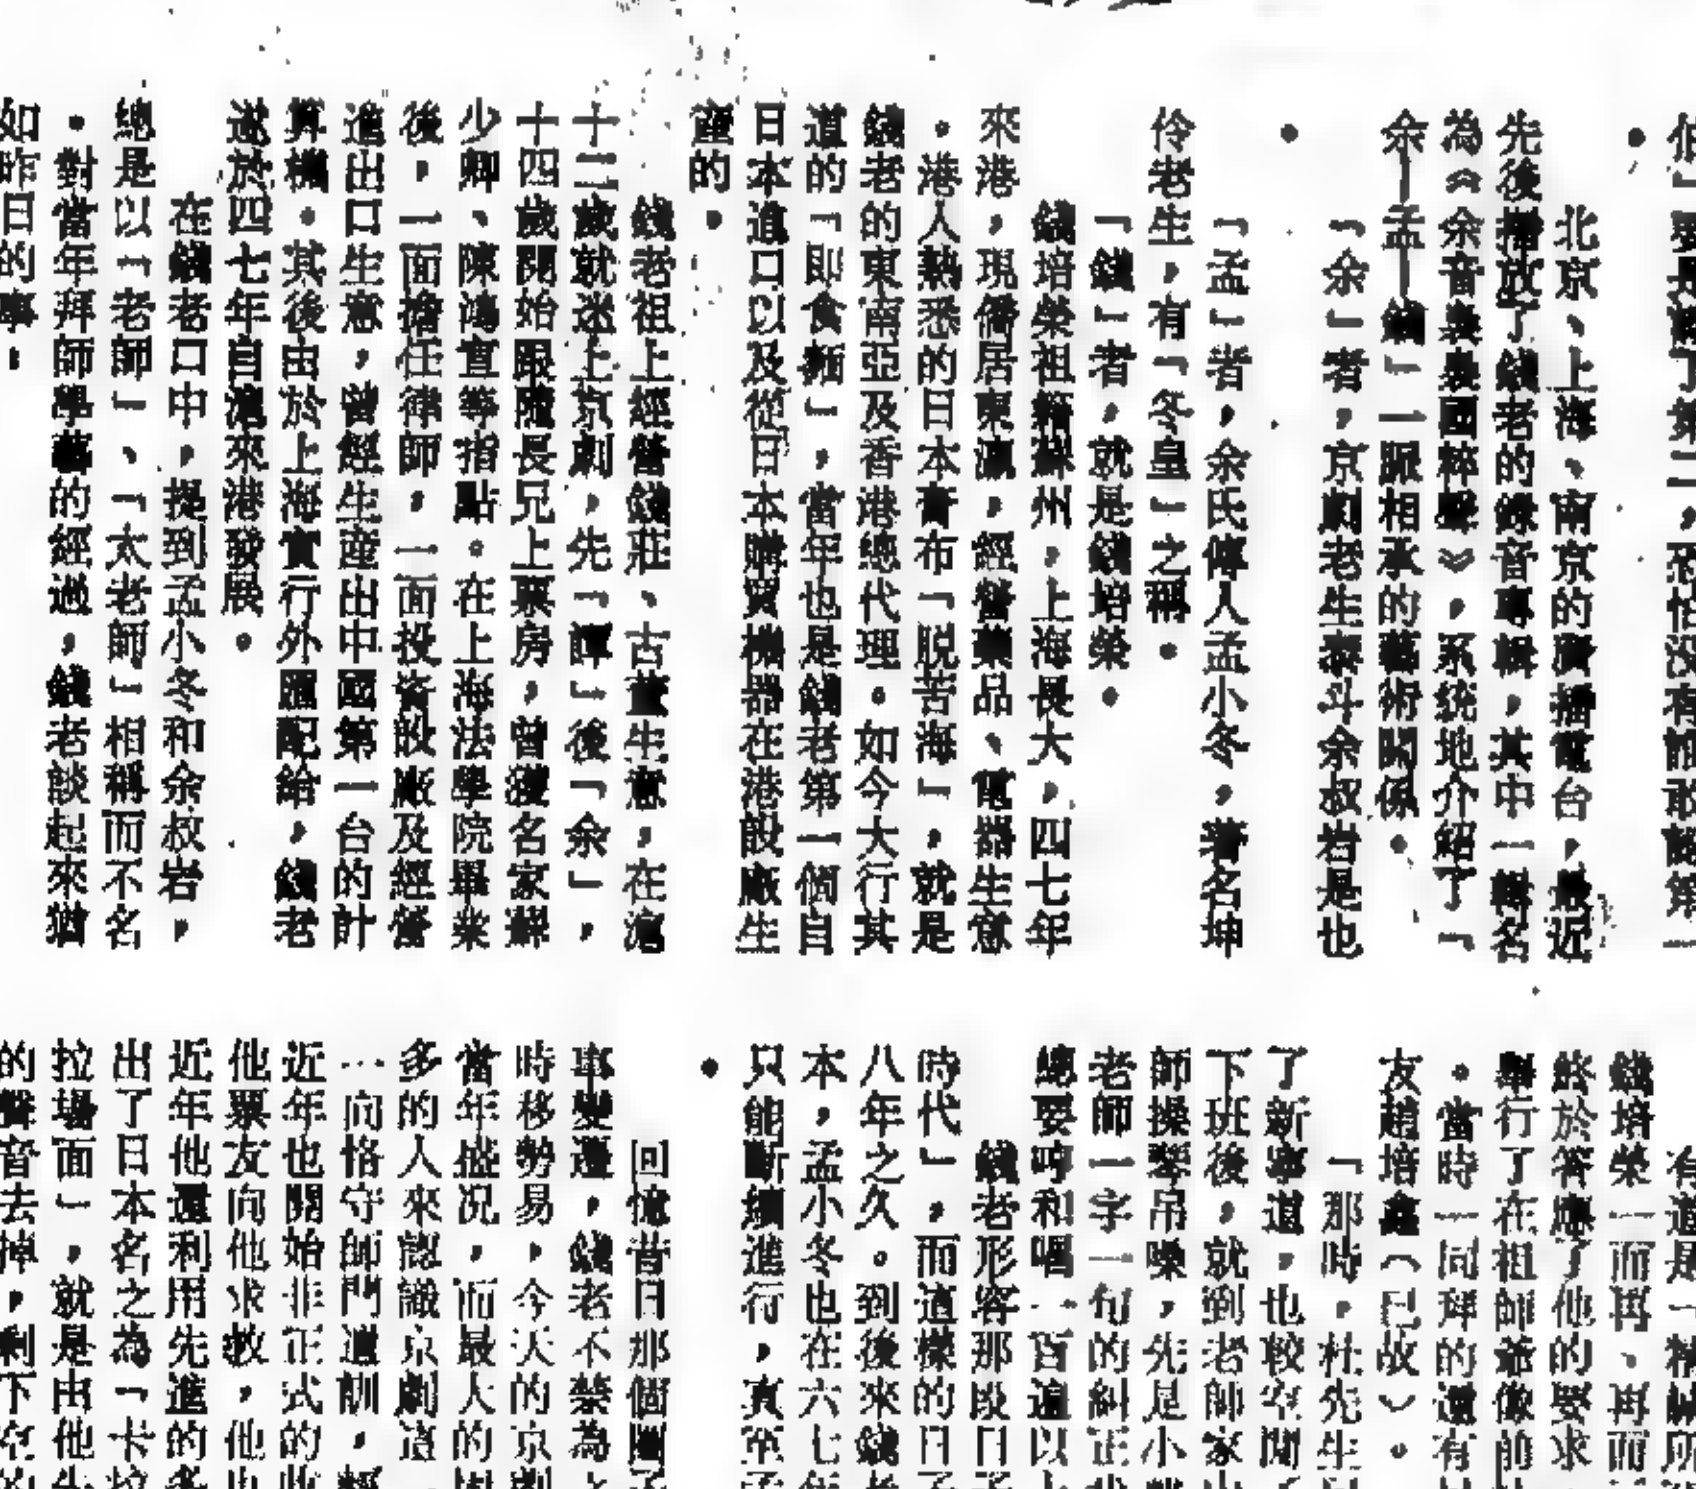 他」要是認了第二,恐怕没有誰敢認第一
。
北京、上海、南京的廣播電台,最近
先後播放了錢老的錄音專輯,其中一輯名
為《余音裊裊國粹馨》,系统地介紹了「
余—孟—錢」一脈相承的藝術関係。
「余」者,京劇老生泰斗余叔岩是也
。
「孟」者,余氏傳人孟小冬,著名坤
伶老生,有「冬皇」之稱。
「錢」者,就是錢培榮。
錢培榮祖籍蘇州,上海長大,四七年
來港,現僑居東瀛,經營藥品、電器生意
。港人熟悉的日本膏布「脱苦海」,就是
錢老的東南亞及香港總代理。如今大行其
道的「即食麵」,當年也是錢老第一個自
日本進口以及從日本購買機器在港設廠生
產的。
錢老祖上經營錢莊、古董生意,在滬
十二歲就迷上京劇,先「譚」後「余」,
十四歲開始跟隨長兄上票房,曾獲名家蘇
少卿、陳鴻宣等指點。在上海法學院畢業
後,一面擔任律師,一面投資設廠及經營
進出口生意,曾經生産出中國第一台的計
算機。其後由於上海實行外匯配給,錢老
遂於四七年自滬來港發展。
在錢老口中,提到孟小冬和余叔岩,
總是以「老師」、「太老師」相稱而不名
。對當年拜師學藝的經過,錢老談起來猶
如昨日的事。
有道是「精誠所
錢培榮一而再、再而
終於答應了他的要求
舉行了在祖師爺像前
。當時一同拜的還有
友趙培鑫(已故)。
「那時,杜先生
了新寧道,也較空閒
下班後,就到老師家
師操琴吊嗓,先是小
老師一字一句的糾正
總要哼和唱一百遍以上
錢老形容那段日子
時代」,而這樣的日子
八年之久。到後來錢老
本,孟小冬也在六七年
只能斷續進行,真至孟
。
回憶昔日那個圈子
事變遷,錢老不禁為之
時移勢易,今天的京劇
當年盛况,而最大的
多的人來認識京劇這
一向恪守師門遺訓,
近年也開始非正式的收
他票友向他求教,他也
近年他還利用先進的
出了日本名之為「卡拉
拉場面」,就是由他先
的聲音去掉,剩下空的